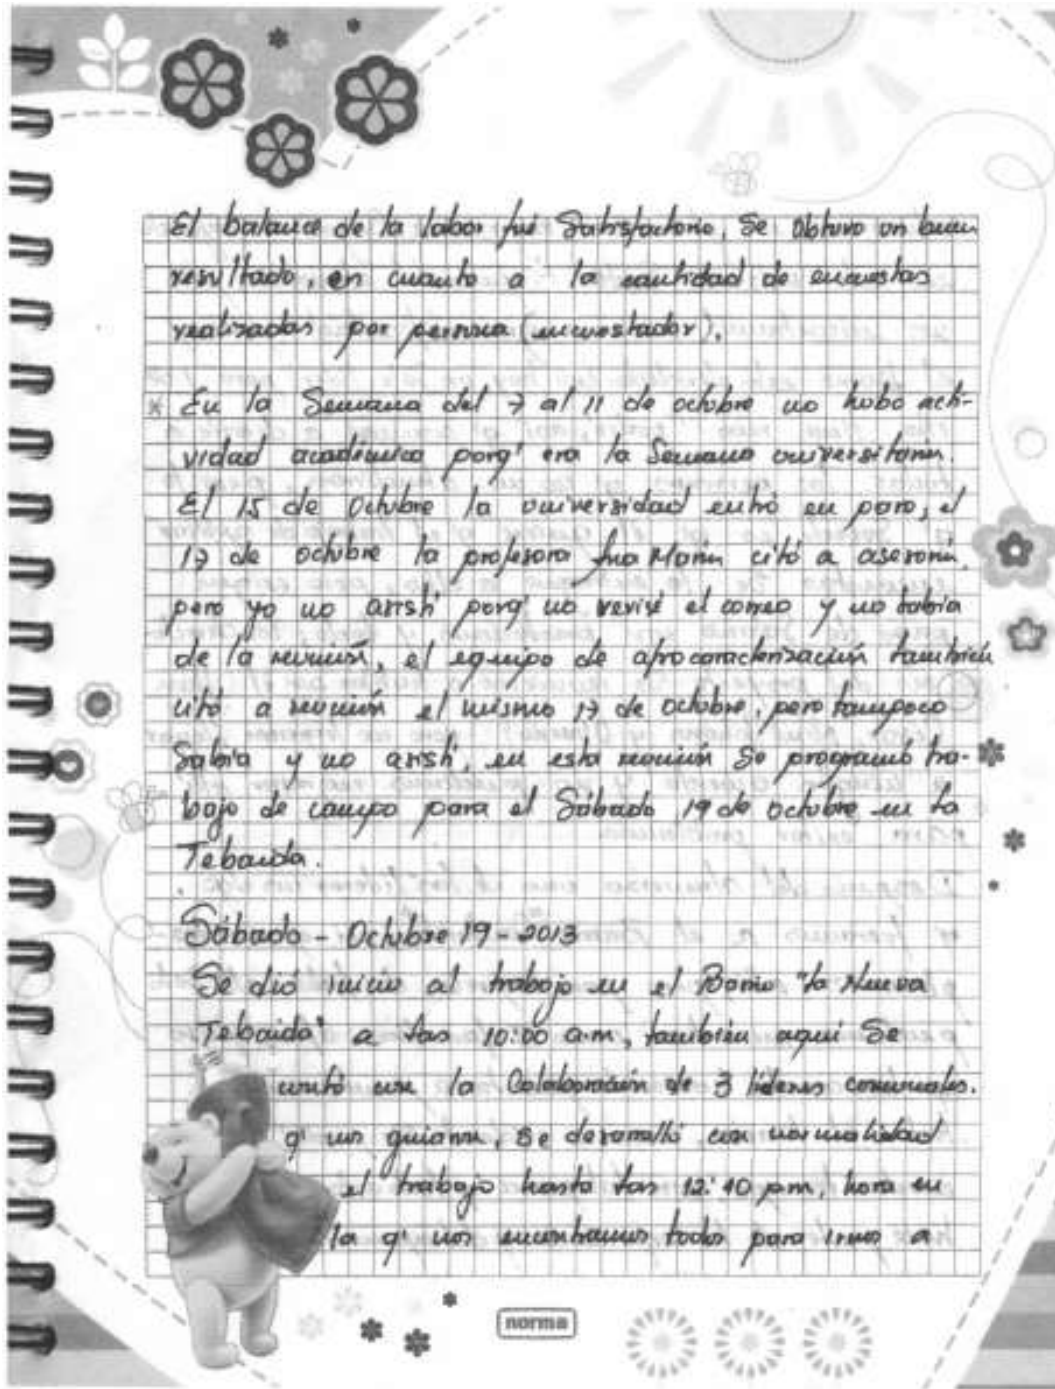 El balance de la labor fué Satisfactorio, Se Obtuvo un buen
resultado, en cuanto a la cantidad de encuestas
realizadas por persona (encuestador).
* En la Semana del 7 al 11 de octubre no hubo acti-
vidad académica porq' era la Semana universitaria.
El 15 de Octubre la universidad entró en paro, el
17 de octubre la profesora Ana María citó a asesoría,
pero yo no asistí porq' no revisé el correo y no sabía
de la reunión, el equipo de afrocaracterización también
citó a reunión el mismo 17 de octubre, pero tampoco
Sabía y no asistí, en esta reunión Se programó tra-
bajo de campo para el Sábado 19 de octubre en La
Tebaida.
Sábado - Octubre 19 - 2013
Se dió inicio al trabajo en el Barrio "La Nueva
Tebaida" a las 10:00 a.m, también aquí Se
contó con la Colaboración de 3 líderes comunales.
q' nos guiaron, Se desarrolló con normalidad
el trabajo hasta las 12:40 pm, hora en
la q' nos encontramos todos para irnos a
norma